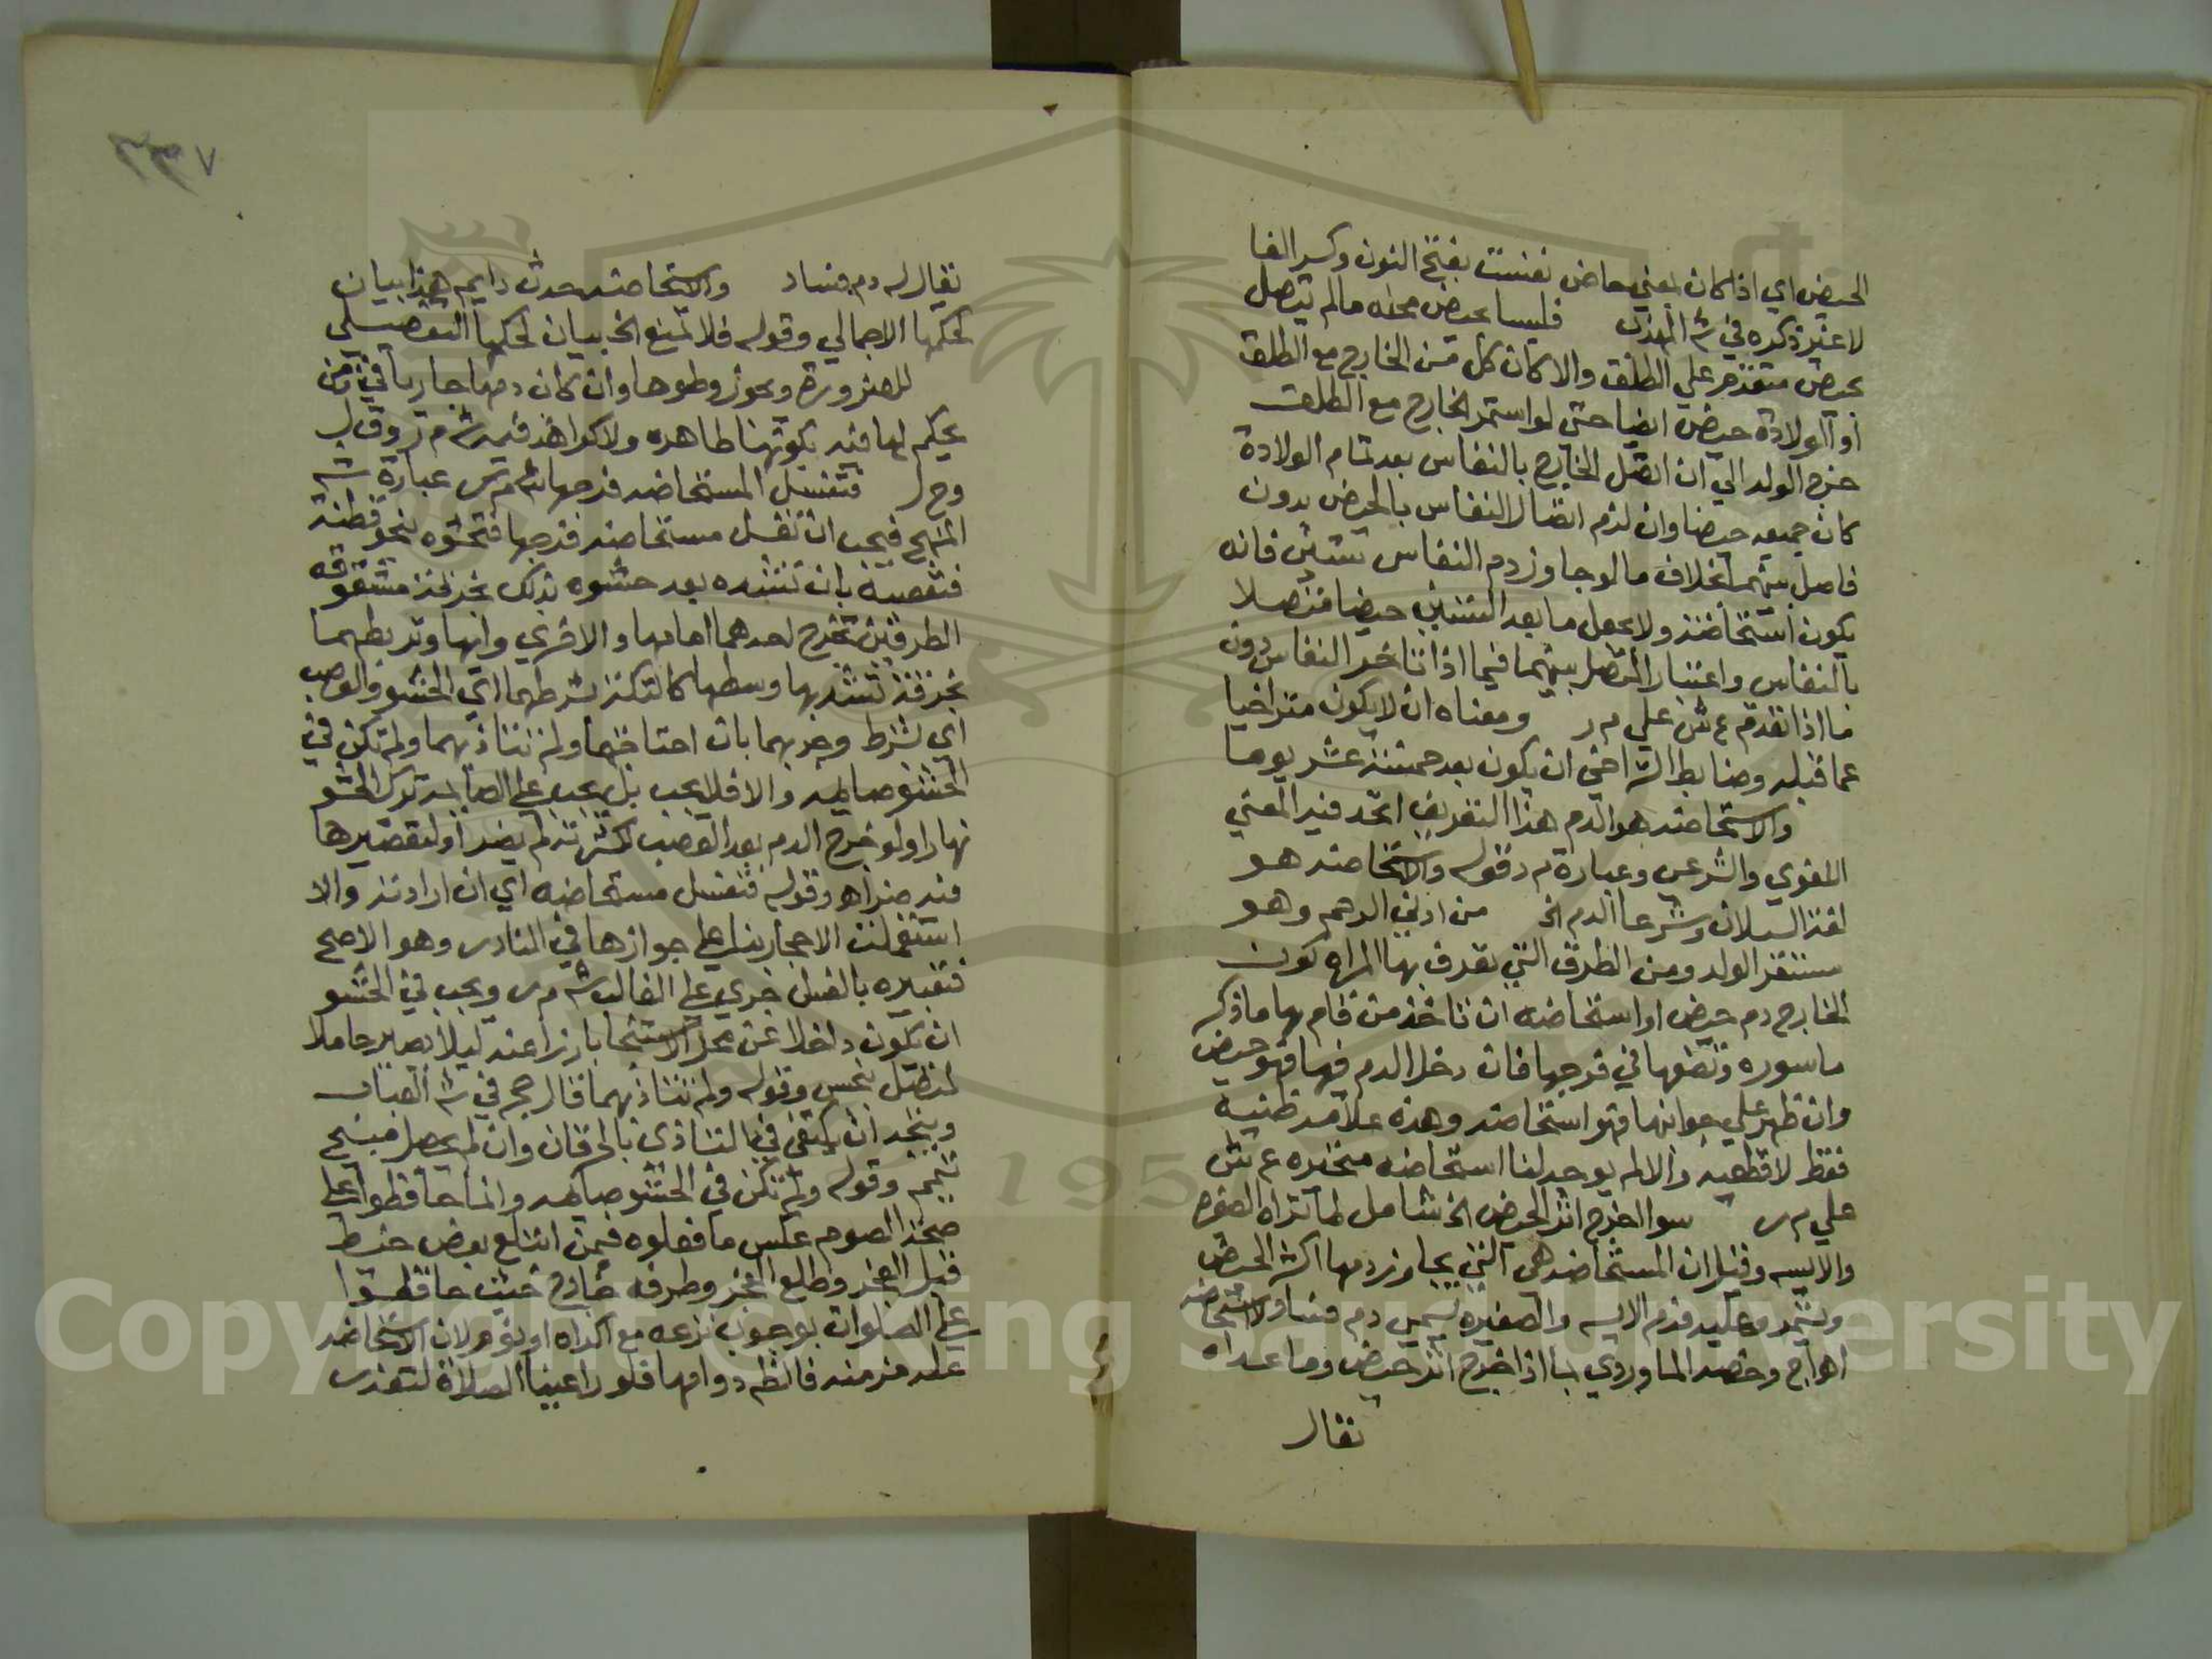 الحيض اي اذا كان بمعني حاض نفست بفتح النون وكسر الفا
لا غير ذكره في ش المهذب فليسا بحيض محله مالم يتصل
بحيض متقدم علي الطلق والا كان كل من الخارج مع الطلق
او الولادة حيض ايضا حتي لو استمر الخارج مع الطلق
خرج الولد الي ان اتصل الخارج بالنفاس بعد تمام الولادة
كان جميعه حيضا وان لزم اتصال النفاس بالحيض بدون
فاصل بينهما بخلاف ما لو جاوز دم النفاس ستين فانه
يكون استحاضة ولا يجعل ما بعد الستين حيضا متصلا
بالنفاس واعتبار الفصل بينهما فيما اذا تاخر النفاس دون
ما اذا تقدم ع ش علي م ر ومعناه ان لا يكون متراخيا
عما قبله وضابط التراخي ان يكون بعد خمسة عشر يوما
والاستحاضه هو الدم هذا التعريف اتحد فيه المعني
اللغوي والشرعي وعبارة م ر قوله والاستحاضه هو
لغة السيلان وشرعا الدم الخ من ادني الرحم وهو
مستقر الولد ومن الطرق التي تعرف بها المراه كون
الخارج دم حيض او استحاضه ان تاخذ من قام بها ما ذكر
ماسوره وتضعها في فرجها فان دخل الدم فيها فهو حيض
وان ظهر علي جوانبها فهو استحاضه وهذه علامه ظنيه
فقط لا قطعيه والا لم يوجد لنا استحاضه متحيره ع ش
علي م ر سوا اخرج اثر الحيض الخ شامل لما تراه الصغره
والايسه وقيل ان المستحاضه هي التي يجاوز دمها اكثر الحيض
ويستمر وعليه فدم الايسه والصغيره يسمي دم فساد ولا استحاضه
اهـ اج وخصه الماوردي بما اذا خرج اثر حيض وما عداه
يقال
يقال له دم فساد والاستحاضه حدث دايم هذا بيان
لحكمها الاجمالي وقوله فلا تمنع الخ بيان لحكمها التفصيلي
للضرورة ويجوز وطوها وان كان دمها جاريا في زمن
يحكم لها فيه بكونها طاهره ولا كراهة فيه ش م ر وق ل
وح ل فتغسل المستحاضه فرجها ش م ر عبارة ش
المنهج فيجب ان تغسل مستحاضه فرجها فتحشوه بنحو قطنة
فتعصبه بان تشده بعد حشوه بذلك بخرقة مشقوقه
الطرفين تخرج احدهما امامها والاخري وراها وتربطهما
بخرقة تشد بها وسطها كالتكة بشرطهما اي الحشو والعصب
اي بشرط وجوبهما بان احتاجتهما ولم تتاذ بهما ولم تكن في
الحشو صايمه والا فلا يجب بل يجب علي الصايمه ترك الحشو
نهارا ولو خرج الدم بعد العصب لكثرته لم يضر او لتقصيرها
فيه ضر اهـ وقوله فتغسل مستحاضه اي ان ارادته والا
استعملت الاحجار بناء علي جوازها في النادر وهو الاصح
فتعبيره بالغسل جري علي الغالب ش م ر ويجب في الحشو
ان يكون داخلا عن محل الاستنجا بارزا عنه ليلا يصير حاملا
لمتصل بنجس وقوله ولم تتاذ بهما قال حجر في ش العباب
ويتجه ان يكتفي في التاذي بالحرقان وان لم يحصل مبيح
تيمم وقوله ولم تكن في الحشو صايمه وانما حافظوا علي
صحة الصوم عكس ما فعلوه فيمن ابتلع بعض خيط
قبل الفجر وطلع الفجر وطرفه خارج حيث حافظوا
علي الصلوات بوجوب نزعه مع اكراه او نوم لان الاستحاضه
عله مزمنه فالظ دوامها فلو راعينا الصلاة لتعذر